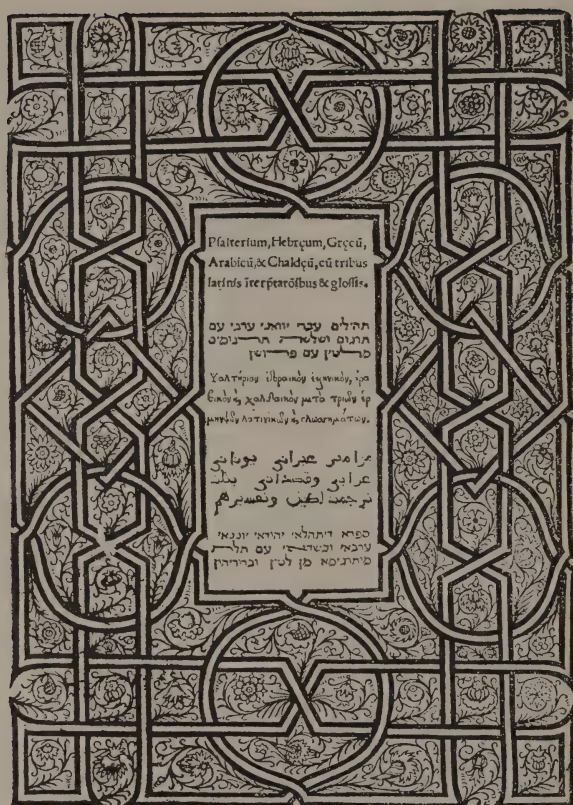 Pſalterium, Hebręum, Gręcū,
Arabicū, & Chaldęū, cū tribus
latinis ĩterp̃tatõibus & gloſſis.
תהלים עברי יוואני ערבי עם
תרגום ושלשה תרגומים
מלטין עם פרושן
Ψαλτήριον ἑβραικὸν ἑλληνικὸν, ἀρα
βικὸν ϗ χαλδαικὸν μετὰ τριῶν ἑρ
μηνιῶν λατινικῶν ϗ γλωσσημάτων.
مزامير عبراني يوناني
عرابي وقصداني بثلث
ترجمت لطيني وتفسيرهم
ספרא דיתהלאי יהודאי יוונאי
ערבאי וכשדאי עם תלת
מן לטין